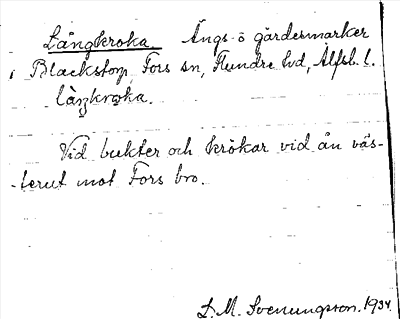 Långkroka Ängs- o gärdesmarker
i Blackstorp, Fors sn, Flundre hd, Älfsb. l.
làŋkrωka.
Vid bukter och krökar vid ån väs-
terut mot Fors bro.
D. M. Svenungsson. 1934